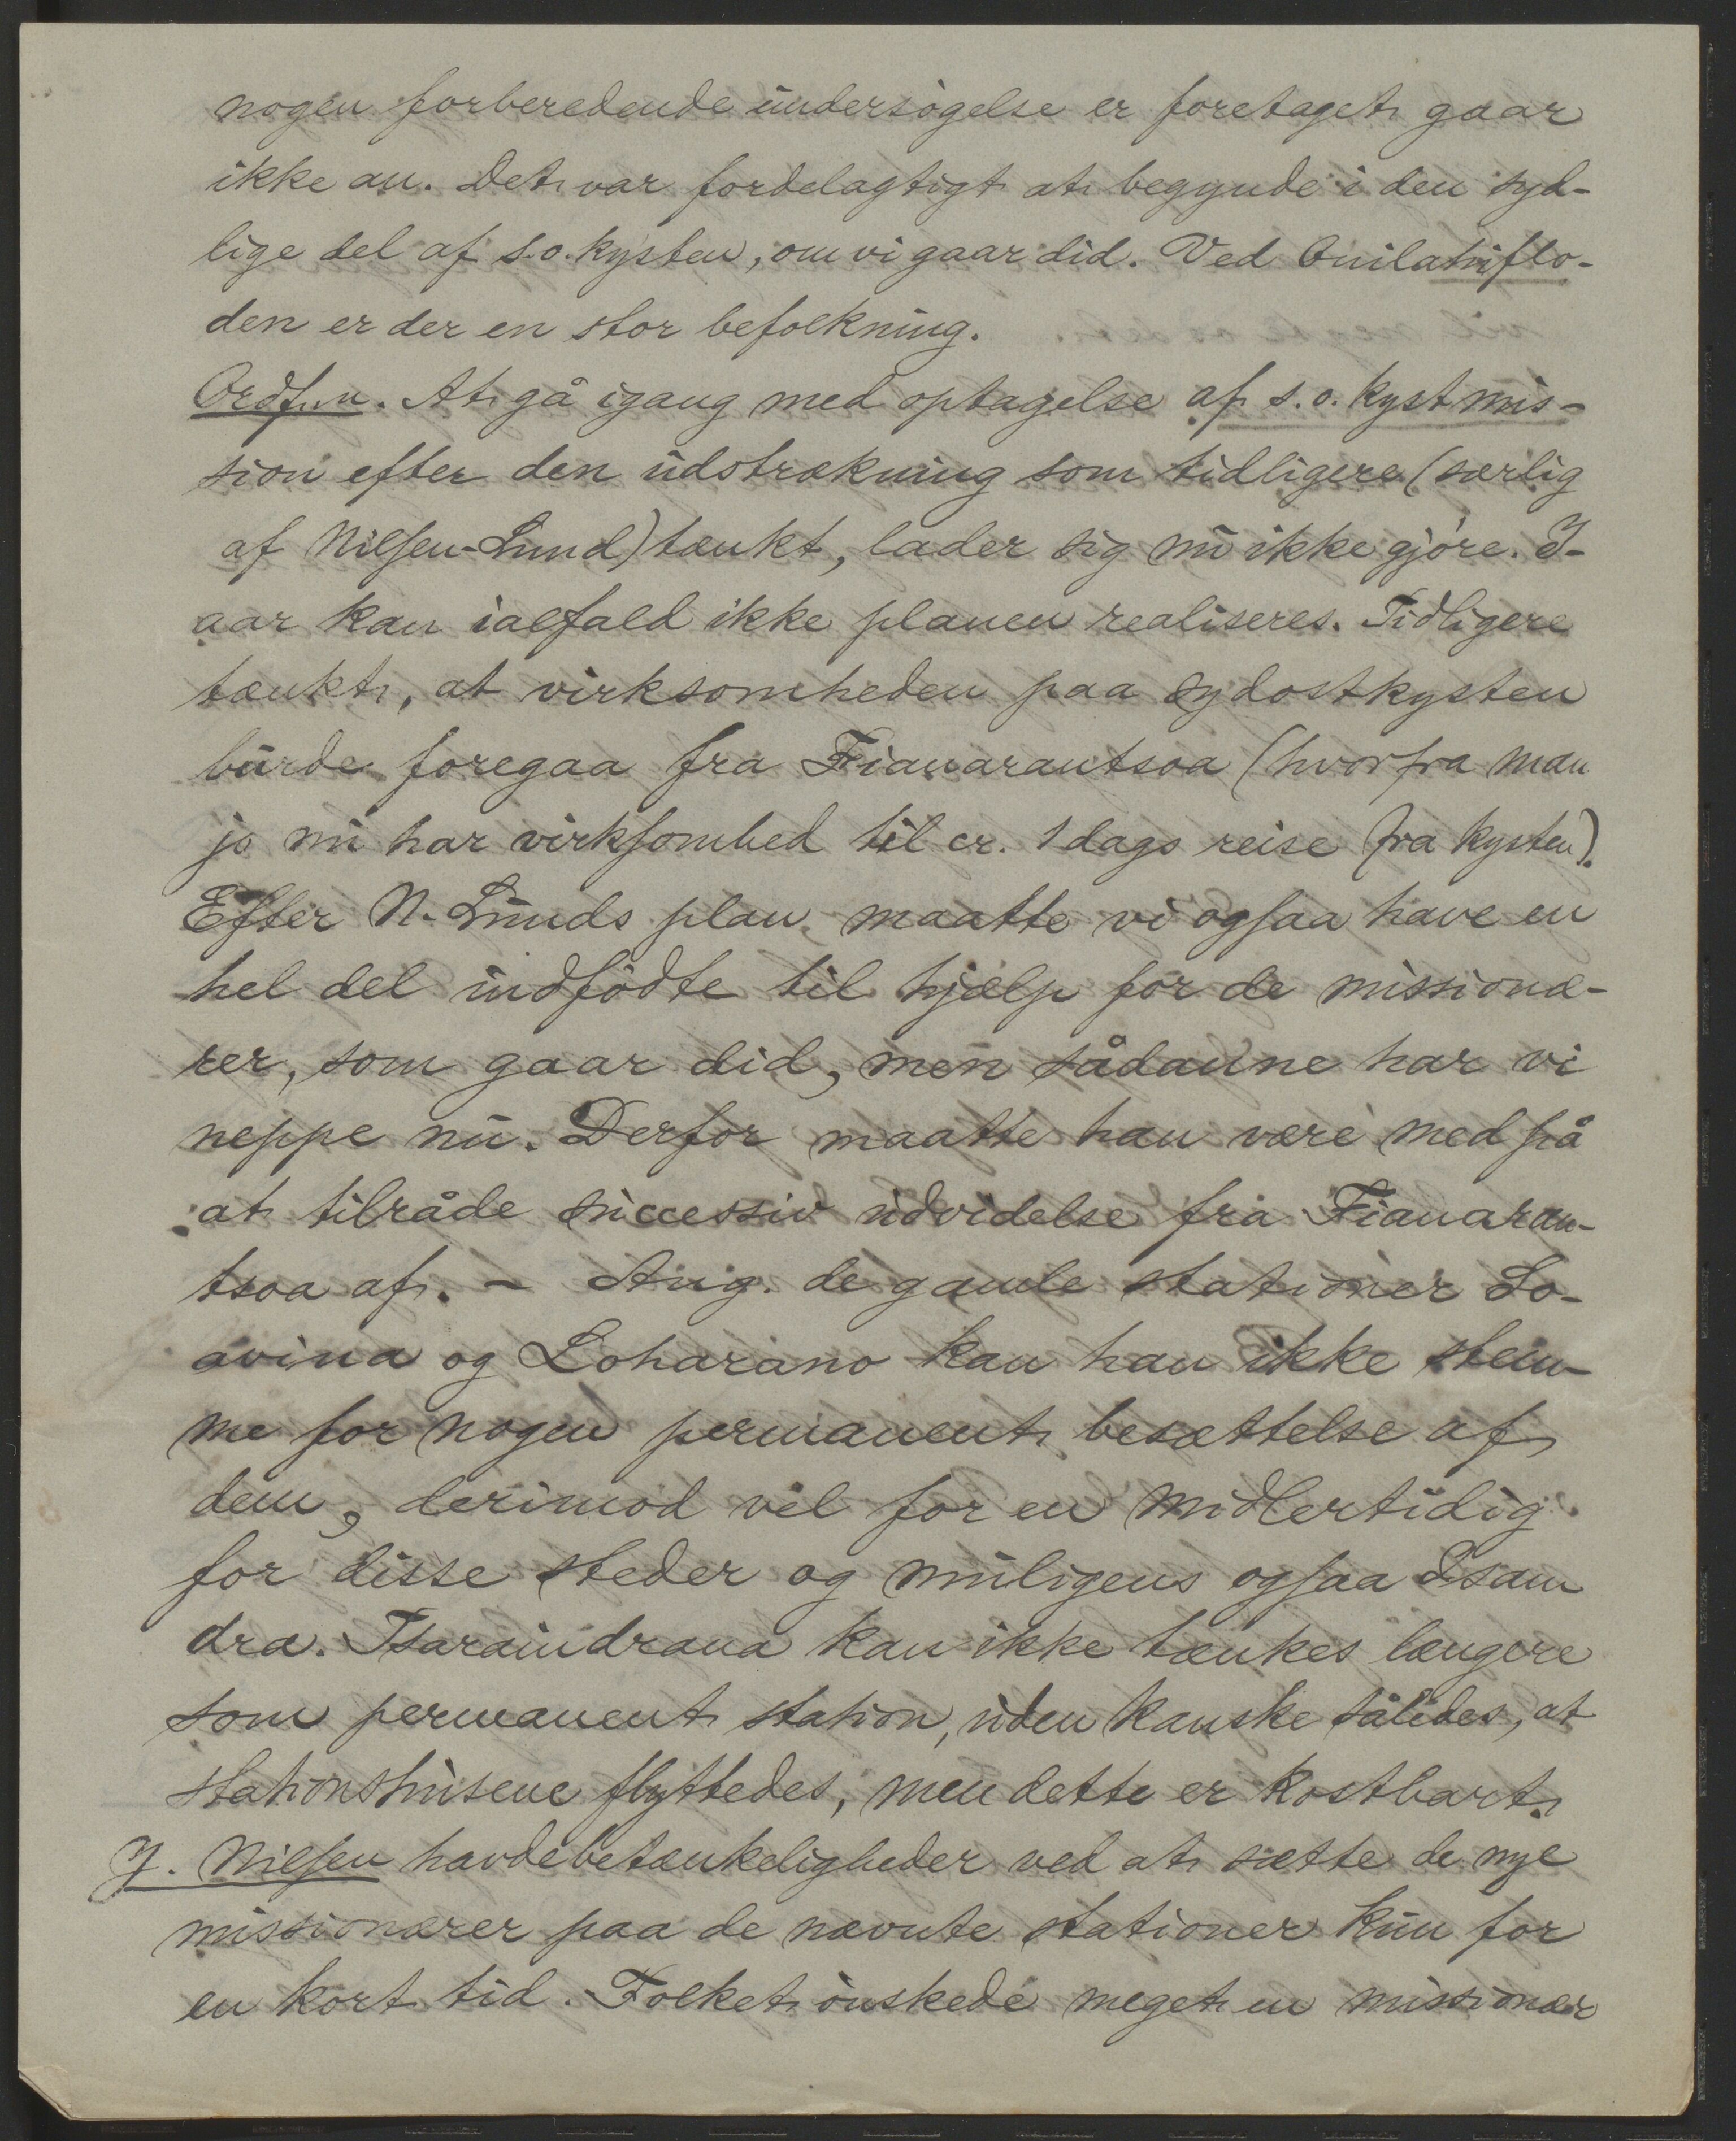 nogen forberedende undersøgelse er foretaget gaar
ikke an. Det var fordelagtigt at begynde i den syd-
lige del af s.o. kysten, om vi gaar did. Ved Onilahiflo-
den er der en stor befolkning.
Ordf.n. At gå igang med optagelse af s.o. kystmis-
sion efter den udstrækning som tidligere (særlig
af Nilsen-Lund) tænkt, lader sig nu ikke gjøre. I-
aar kan ialfald ikke planen realiseres. Tidligere
tænkt, at virksomheden paa sydostkysten
burde foregaa fra Fianarantsoa (hvorfra man
jo nu har virksomhed til cr. 1 dags reise fra kysten).
Efter N. Lunds plan maatte vi ogsaa have en
hel del indfødte til hjælp for de missionæ-
rer, som gaar did, men sådanne har vi
neppe nu. Derfor maatte han være med på
at tilråde successiv udvidelse fra Fianaran-
tsoa af. – Ang. de gamle stationer So-
avina og Loharano kan han ikke stem-
me for nogen permanent besættelse af
dem, derimod vel for en midlertidig
for disse steder og muligens ogsaa Isan
dra. Tsaraindrana kan ikke tænkes længere
som permanent station, uden kanske således, at
stationshusene flyttedes, men dette er kostbart.
J. Nilsen havde betænkeligheder ved at sætte de nye
missionærer paa de nævnte stationer kun for
en kort tid. Folket ønskede meget en missionær